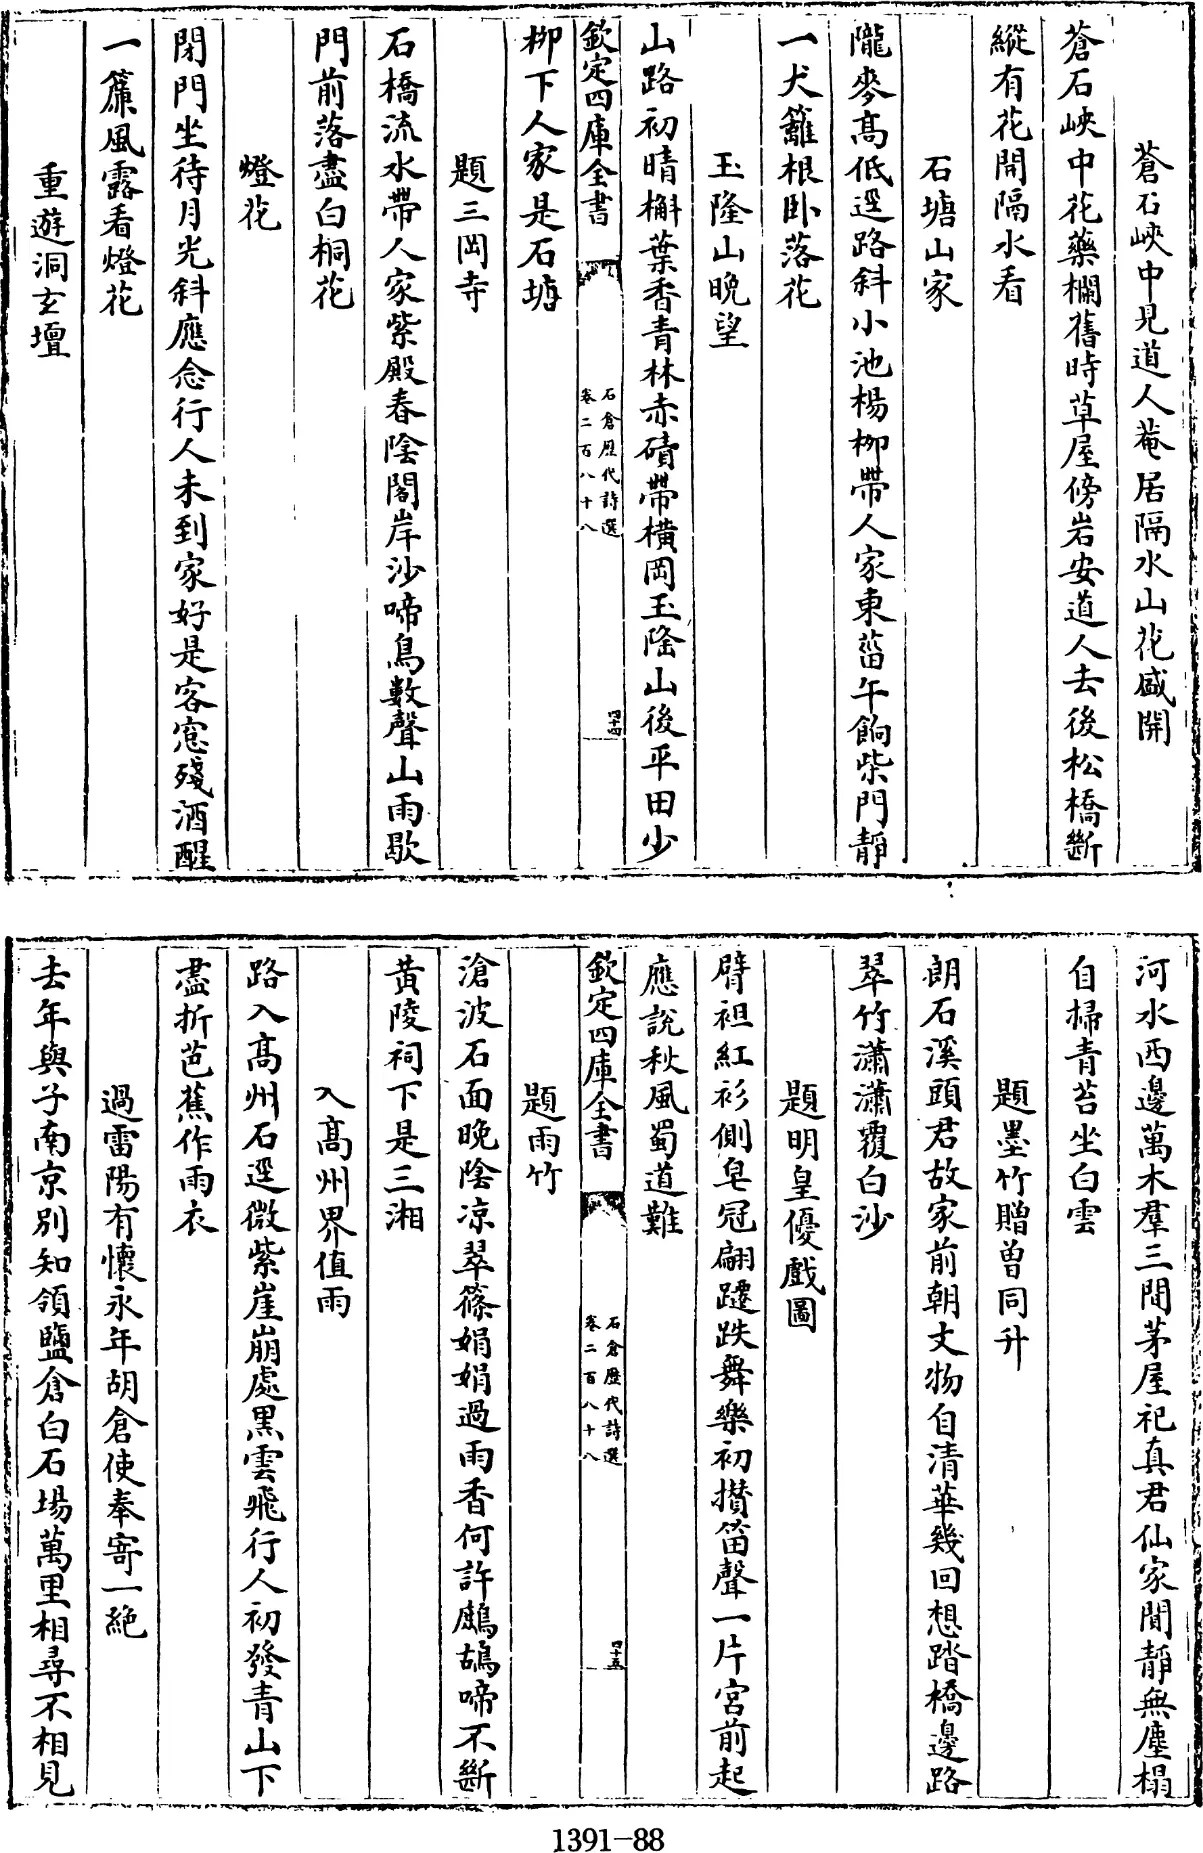 蒼石峽中見道人菴居隔水山花盛開
蒼石峽中花藥欄舊時草屋傍岩安道人去後松橋斷
縱有花開隔水看
石塘山家
隴麥高低逕路斜小池楊柳帶人家東菑午餉柴門靜
一犬籬根卧落花
玉隆山晩望
山路初晴槲葉香青林赤磧帶横岡玉隆山後平田少
欽定四庫全書
石倉歷代詩選
卷二百八十八
四十四
柳下人家是石塘
題三岡寺
石橋流水帶人家紫殿春陰閣岸沙啼鳥數聲山雨歇
門前落盡白桐花
燈花
閉門坐待月光斜應念行人未到家好是客窓殘酒醒
一簾風露看燈花
重遊洞玄壇
河水西邊萬木羣三間茅屋祀真君仙家閒靜無塵榻
自掃青苔坐白雲
題墨竹贈曽同升
朗石溪頭君故家前朝文物自清華幾回想踏橋邊路
翠竹瀟瀟覆白沙
題明皇優戲圖
臂袒紅衫側皂冠翩躚跌舞樂初攅笛聲一片宮前起
應說秋風蜀道難
欽定四庫全書
石倉歷代詩選
卷二百八十八
四十五
題雨竹
滄波石面晩陰凉翠篠娟娟過雨香何許鷓鴣啼不斷
黄陵祠下是三湘
入髙州界值雨
路入髙州石逕微紫崖崩處黒雲飛行人初發青山下
盡折芭蕉作雨衣
過雷陽有懷永年胡倉使奉寄一絶
去年與子南京別知領鹽倉白石場萬里相尋不相見
1391-88